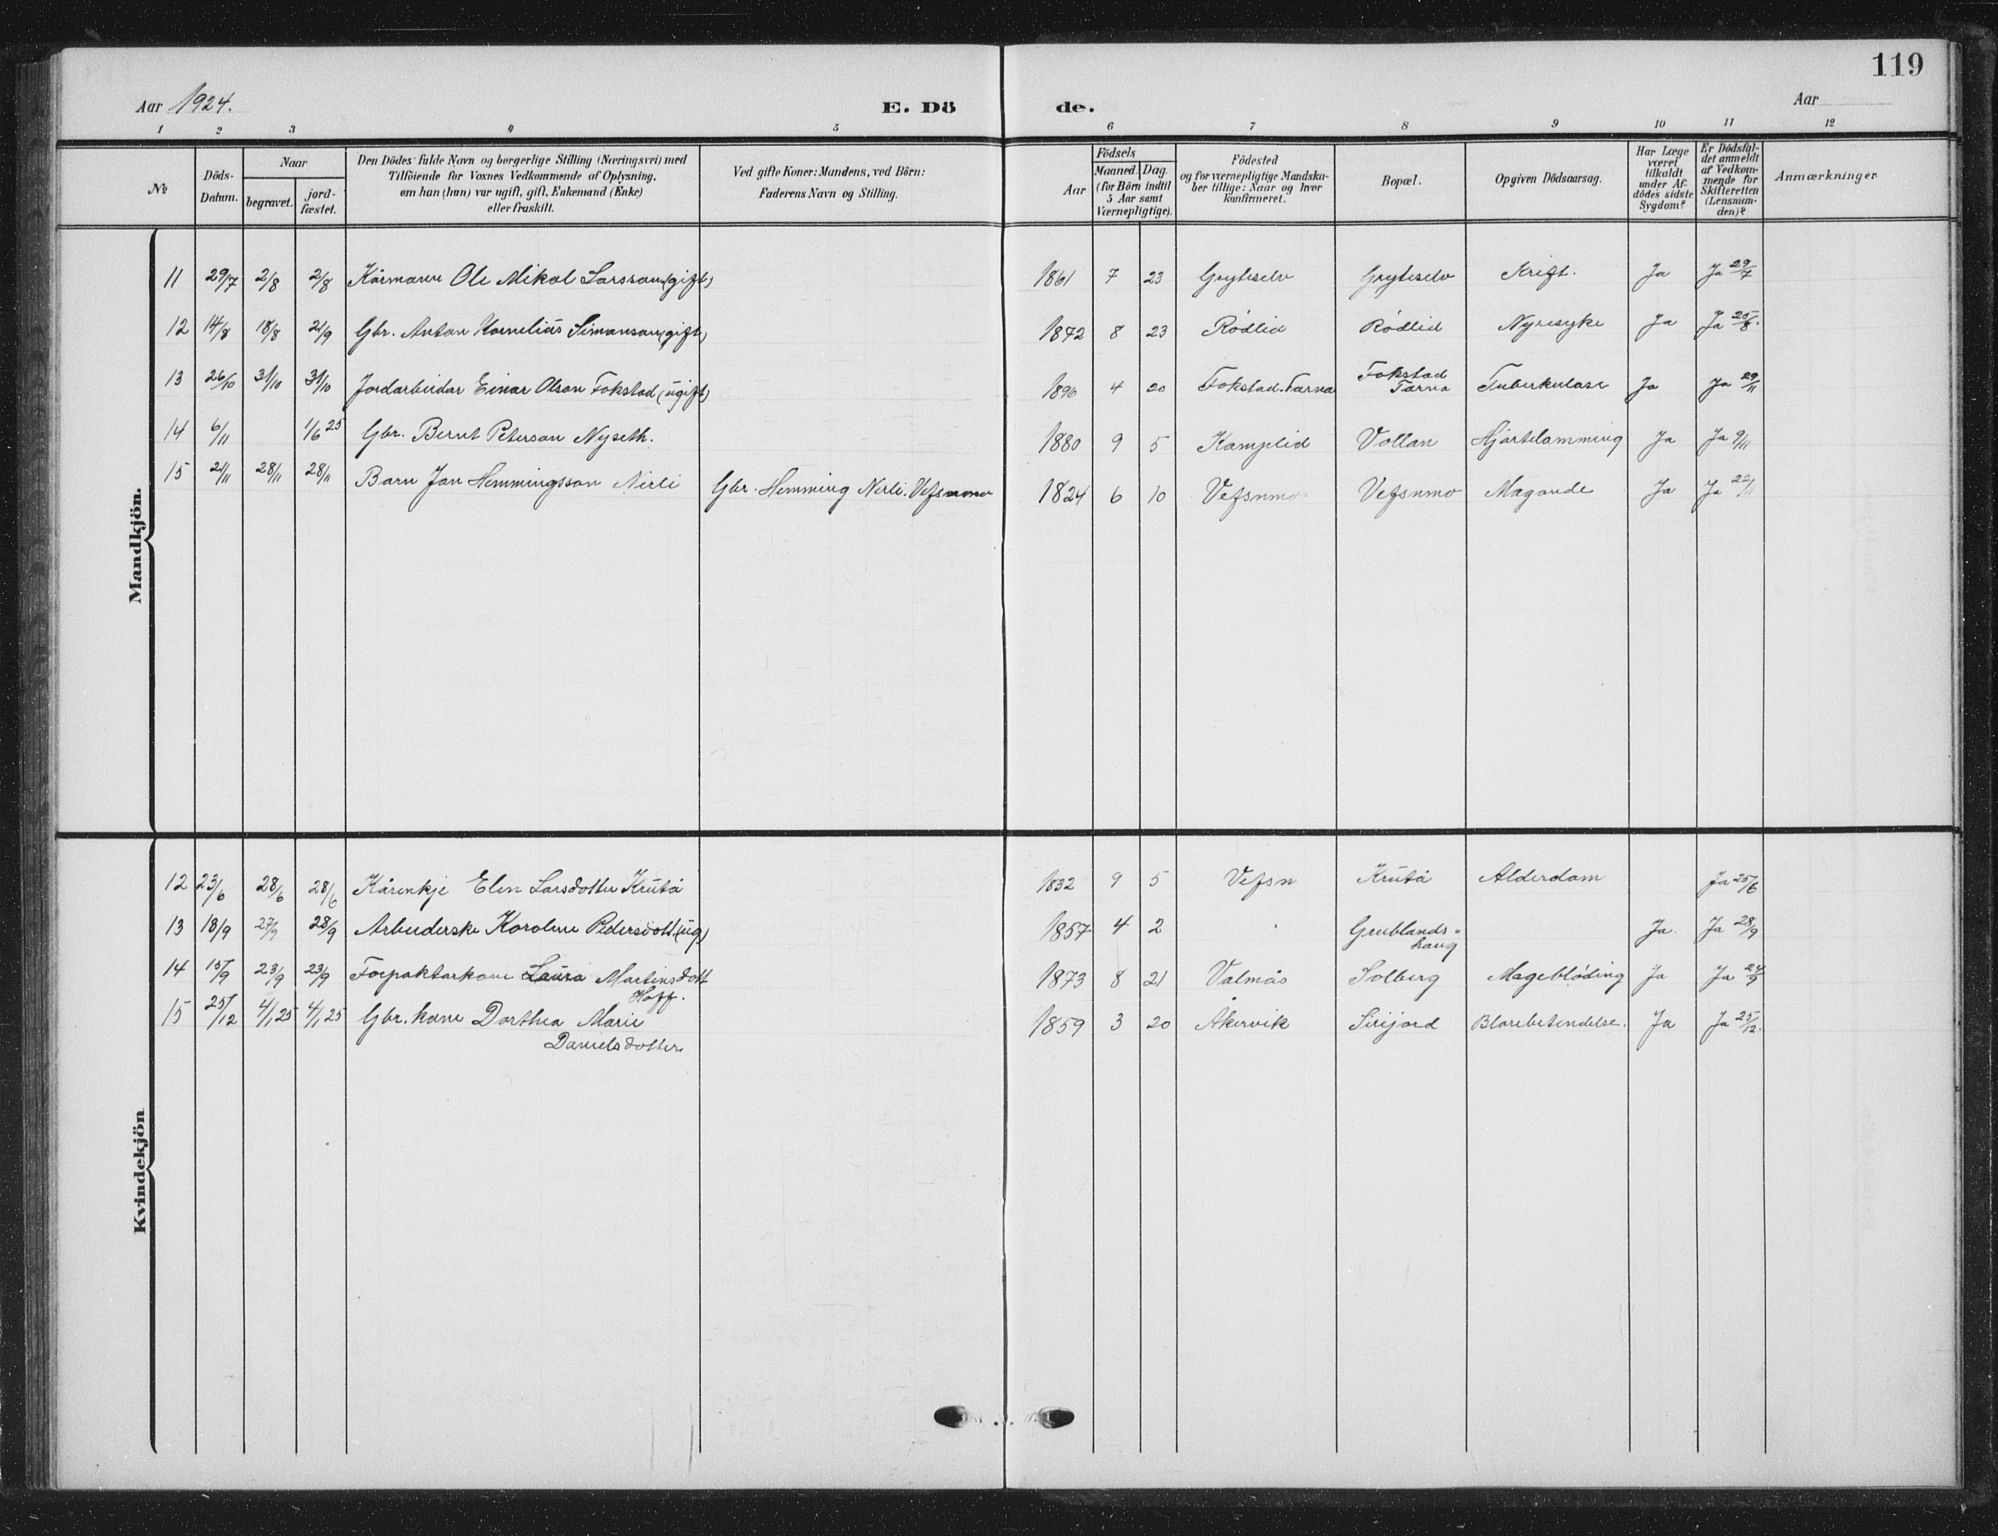 119
Aar 1924. E. Dö de. Aar
1 2 3 4 5 6 7 8 9 10 11 12
No
Döds-Datum.
Naar
begravet.
jord-fæstet.
Den Dödes fulde Navn og borgerlige Stilling (Næringsvei) med
Tilföiende for Voxnes Vedkommende af Oplysning,
om han (hun) var ugift, gift, Enkemand (Enke)
eller fraskilt.
Ved gifte Koner: Mandens, ved Börn:
Faderens Navn og Stilling.
Födsels
Aar
Maaned. Dag.
(for Börn indtil
5 Aar samt
Værnepligtige).
Födested
og for værnepligtige Mandska-
ber tillige: Naar og hvor
konfirmeret.
Bopæl.
Opgiven Dödsaarsag.
Har Læge
været
tilkaldt
under Af-
dödes sidste
Sygdom?
Er Dödsfal-
det anmeldt
af Vedkom-
mende for
Skifteretten
(Lensman-
den)?
Anmærkninger
Mandkjön.
11 29/7 2/8 2/8 Kårmann Ole Mikal Larsson (gift) 1861 7 23 Gryteselv Gryteselv Kreft. Ja Ja 29/7
12 14/8 18/8 21/9 Gbr. Anton Kornelius Simonson (gift) 1872 8 23 Rødlid Rødlid Nyresyke Ja Ja 25/8.
13 26/10 31/10 31/10 Jordarbeidar Einar Olson Fokstad (ugift) 1896 4 20 Fokstad. Tærna Fokstad Tærna Tuberkulose Ja Ja 29/11
14 6/11 1/6 25 Gbr. Bernt Peterson Nyseth. 1880 9 5 Kamplid Vollan Hjartelamming Ja Ja 9/11
15 21/11 28/11 28/11 Barn Jan Hemmingsson Nerli Gbr. Hemming Nerli. Vefsnmo 1824 6 10 Vefsnmo Vefsnmo Magonde Ja Ja 22/11
Kvindekjön
12 23/6 28/6 28/6 Kårenkje Elen Larsdotter Krutå 1832 9 5 Vefsn Krutå Alderdom Ja 25/6
13 18/9 27/9 28/9 Arbeiderske Karoline Pedersdott. (ug) 1857 4 2 Grublands=
haug Ja. Ja 28/9
14 15/9 23/9 23/9 Forpaktarkone Laura Martinsdott
Hoff. 1873 8 21 Valmås Solberg Mageblöding Ja Ja 24/9
15 25/12 4/1 25 4/1 25 Gbr. kone Dorthea Marie
Danielsdotter 1859 3 20 Åkervik Sirijord Blærebetendelse. Ja Ja 25/12.